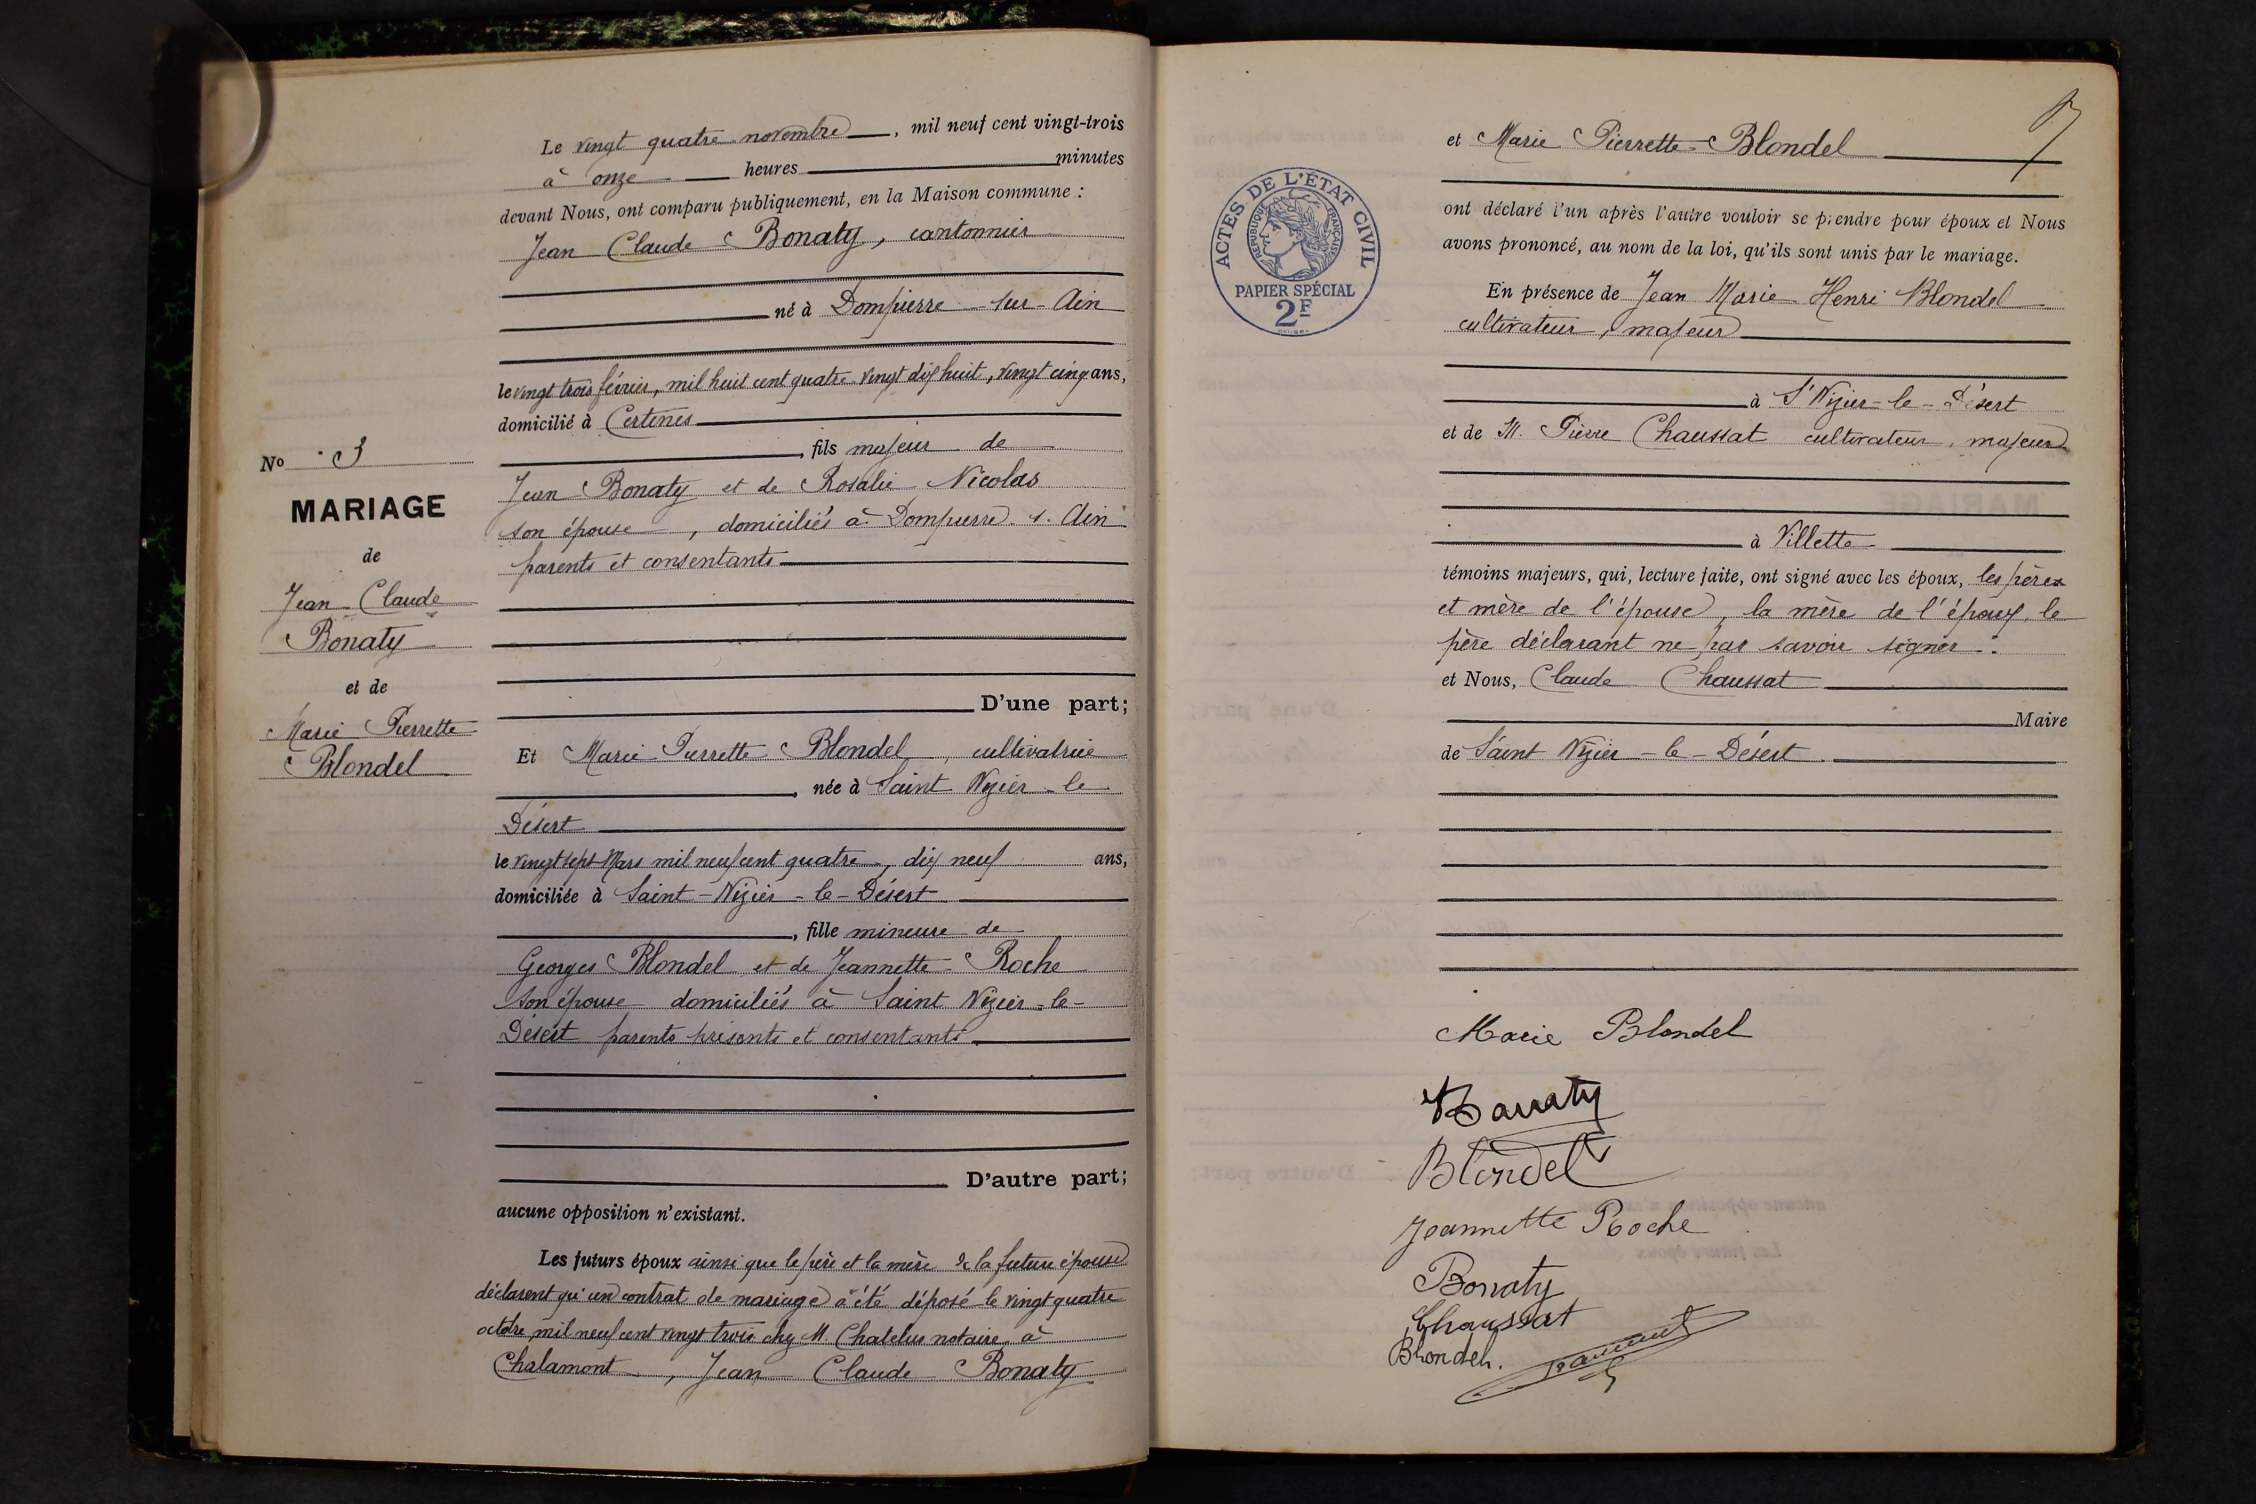 Le vingt quatre novembre, mil neuf cent vingt-trois
à onze heures minutes
devant Nous, ont comparu publiquement, en la Maison commune :
Jean Claude Bonaty, cantonnier
né à Dompierre-sur-Ain
le vingt trois février, mil huit cent quatre-vingt dix huit, vingt cinq ans,
domicilié à Certines
, fils majeur de
Jean Bonaty et de Rosalie Nicolas
son épouse, domiciliés à Dompierre s. Ain
parents et consentants
D'une part;
No 3
MARIAGE
de
Jean Claude
Bonaty
et de
Marie Pierrette
Blondel
Et Marie Pierrette Blondel, cultivatrice
, née à Saint Nizier-le
Désert
le vingt sept Mars mil neuf cent quatre, dix neuf ans,
domiciliée à Saint-Nizier-le-Désert
, fille mineure de
Georges Blondel et de Jeannette Roche
son épouse domiciliés à Saint Nizier-le-
Désert parents présents et consentants
D'autre part;
aucune opposition n'existant.
Les futurs époux ainsi que le père et la mère de la future épouse
déclarent qu'un contrat de mariage a été déposé le vingt quatre
octobre mil neuf cent vingt trois chez M. Chatelus notaire à
Chalamont, Jean Claude Bonaty
et Marie Pierrette Blondel
ont déclaré l'un après l'autre vouloir se prendre pour époux et Nous
avons prononcé, au nom de la loi, qu'ils sont unis par le mariage.
ACTES DE L'ÉTAT CIVIL
RÉPUBLIQUE FRANÇAISE
PAPIER SPÉCIAL
2F
En présence de Jean Marie Henri Blondel
cultivateur, majeur
à St Nizier-le-Désert
et de M. Pierre Chaussat cultivateur, majeur
à Villette
témoins majeurs, qui, lecture faite, ont signé avec les époux, les pères
et mère de l'épouse, la mère de l'époux, le
père déclarant ne pas savoir signer.
et Nous, Claude Chaussat
Maire
de Saint Nizier-le-Désert
Marie Blondel
Bonaty
Blondel
Jeannette Roche
Bonaty
Chaussat
Blondel.